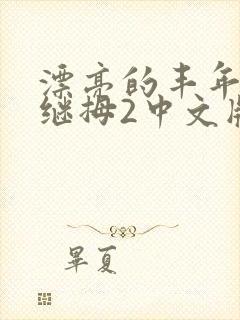 漂亮的丰年
继拇2中文版
畢夏